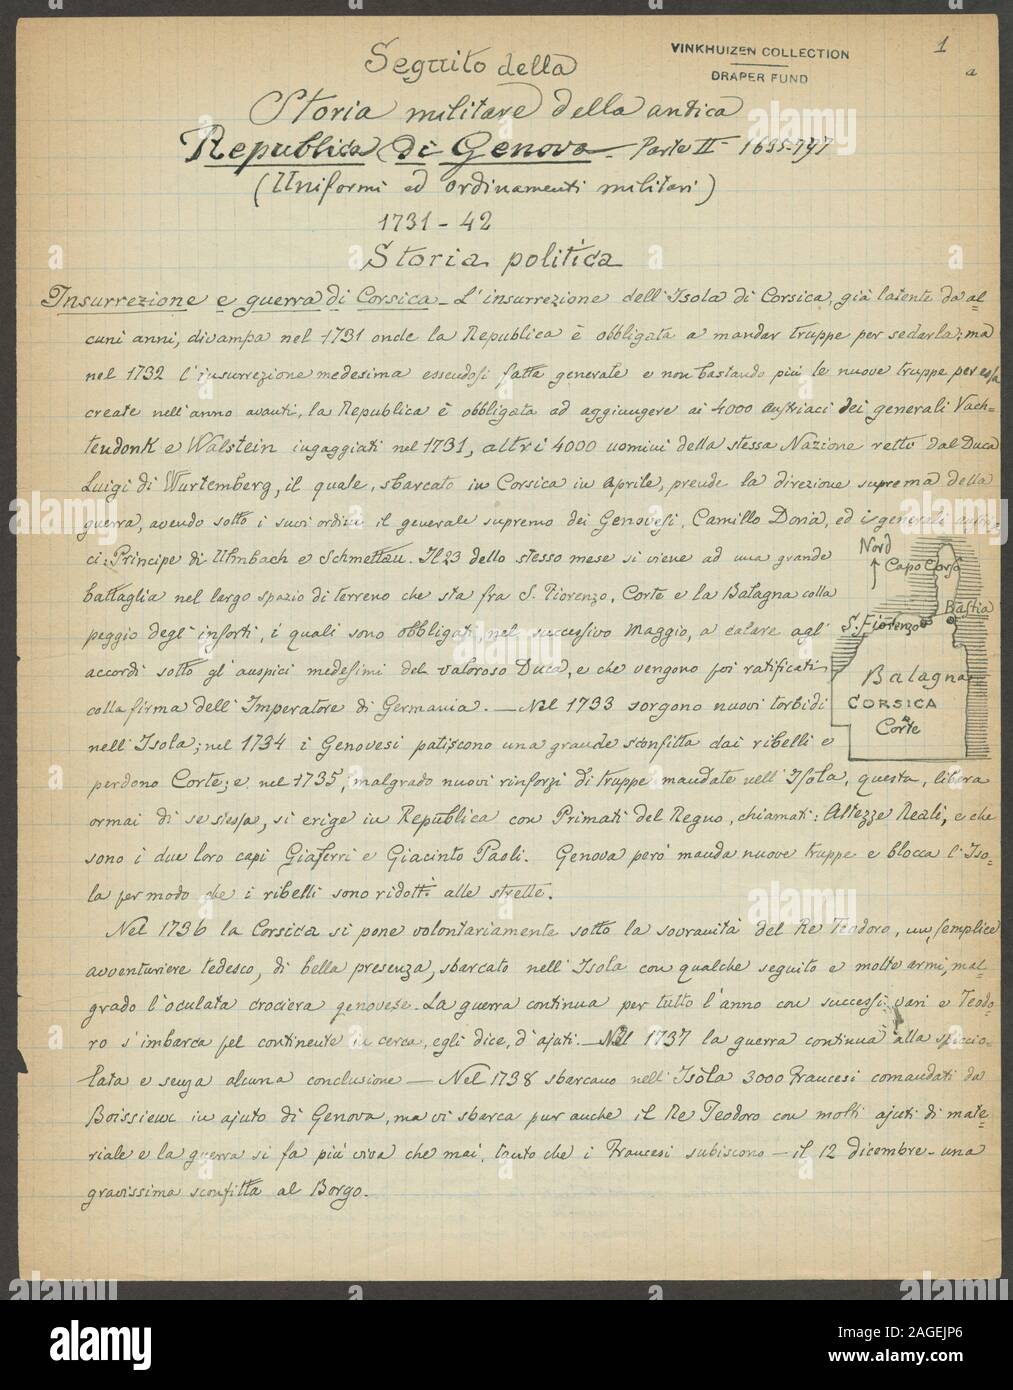 VINKHUIZEN COLLECTION
DRAPER FUND
1
a
Seguito della
Storia militare della antica
Republica di Genova - Parte II - 1635-797
(Uniformi ed ordinamenti militari)
1731 - 42
Storia politica
Insurrezione e guerra di Corsica - L'insurrezione dell'Isola di Corsica, già latente da al=
cuni anni, divampa nel 1731 onde la Republica è obbligata a mandar truppe per sedarla; ma
nel 1732 l'insurrezione medesima essendosi fatta generale e non bastando più le nuove truppe per essa
create nell'anno avanti, la Republica è obbligata ad aggiungere ai 4000 austriaci dei generali Vach=
tendonk e Walstein ingaggiati nel 1731, altri 4000 uomini della stessa Nazione retti dal Duca
Luigi di Wurtemberg, il quale, sbarcato in Corsica in Aprile, prende la direzione suprema della
guerra, avendo sotto i suoi ordini il generale supremo dei Genovesi, Camillo Doria, ed i generali austria=
ci: Principe di Ulmbach e Schmettau. Il 23 dello stesso mese si viene ad una grande
battaglia nel largo spazio di terreno che sta fra S. Fiorenzo, Corte e la Balagna colla
peggio degl'insorti, i quali sono obbligati, nel successivo Maggio, a calare agl'
accordi sotto gl'auspici medesimi del valoroso Duca, e che vengono poi ratificati
colla firma dell'Imperatore di Germania. - Nel 1733 sorgono nuovi torbidi
nell'Isola; nel 1734 i Genovesi patiscono una grande sconfitta dai ribelli e
perdono Corte; e nel 1735, malgrado nuovi rinforzi di truppe mandate nell'Isola, questa, libera
ormai di se stessa, si erige in Republica con Primati del Regno, chiamati: Altezze Reali, e che
sono i due loro capi Giafferri e Giacinto Paoli. Genova però manda nuove truppe e blocca l'Iso=
la per modo che i ribelli sono ridotti alle strette.
Nel 1736 la Corsica si pone volontariamente sotto la sovranità del Re Teodoro, un semplice
avventuriere tedesco, di bella presenza, sbarcato nell'Isola con qualche seguito e molte armi, mal=
grado l'oculata crociera genovese. La guerra continua per tutto l'anno con successi vari e Teodo=
ro s'imbarca pel continente in cerca, egli dice, d'ajuti. - Nel 1737 la guerra continua alla spiccio=
lata e senza alcuna conclusione - Nel 1738 sbarcano nell'Isola 3000 Francesi comandati da
Boissieux in ajuto di Genova, ma vi sbarca pur anche il Re Teodoro con molti ajuti di mate=
riale e la guerra si fa più viva che mai, tanto che i Francesi subiscono - il 12 dicembre - una
gravissima sconfitta al Borgo.
Nord
Capo Corso
Bastia
S. Fiorenzo
Balagna
CORSICA
Corte
alamy
alamy
2AGEJP6
www.alamy.com